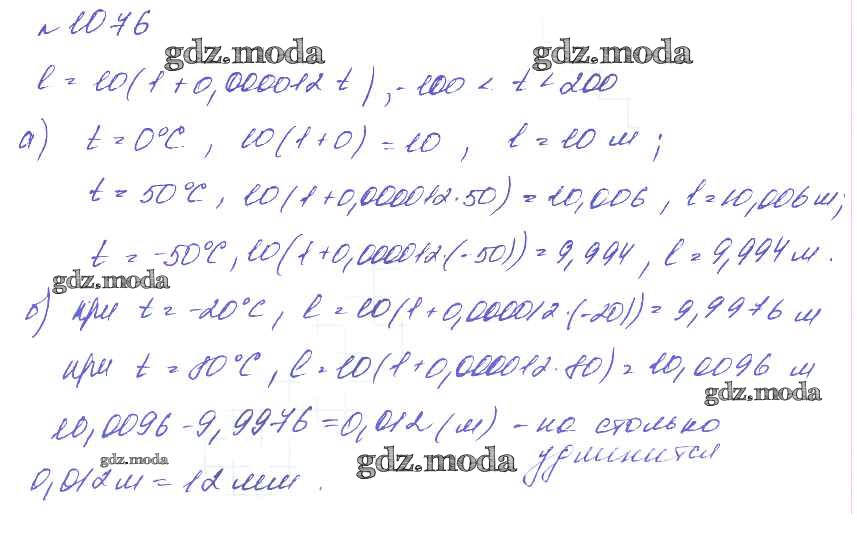 № 1076
gdz.moda gdz.moda
l = 10(1+0,000012 t), -100 < t < 200
а) t = 0°C, 10(1+0) = 10, l = 10 м;
t = 50°C, 10(1+0,000012·50) = 10,006, l = 10,006 м;
t = -50°C, 10(1+0,000012·(-50)) = 9,994, l = 9,994 м.
gdz.moda
б) при t = -20°C, l = 10(1+0,000012·(-20)) = 9,9976 м
при t = 80°C, l = 10(1+0,000012·80) = 10,0096 м
gdz.moda
10,0096 - 9,9976 = 0,012 (м) - на столько
удлинится
gdz.moda gdz.moda
0,012 м = 12 мм.